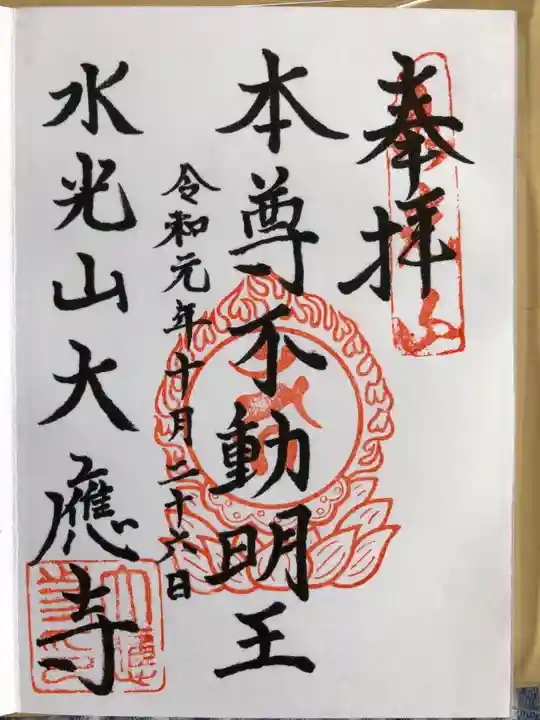 奉拝
本尊不動明王
令和元年十月二十六日
水光山大應寺